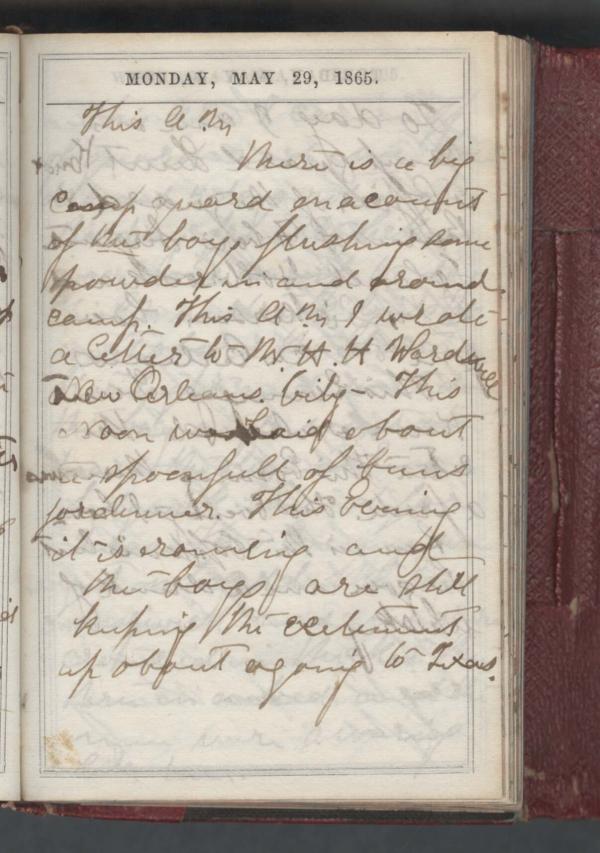 MONDAY, MAY 29, 1865.
This A M
There is a big
camp guard on account
of the boys flushing some
powder in and around
camp. This A M I wrote
a letter to Mr H. H Wardwell
New Orleans City- This
noon we had about
a spoonfull of beans
for dinner. This Evening
it is raining and
the boys are still
keeping the excitement
up about agoing to Texas.